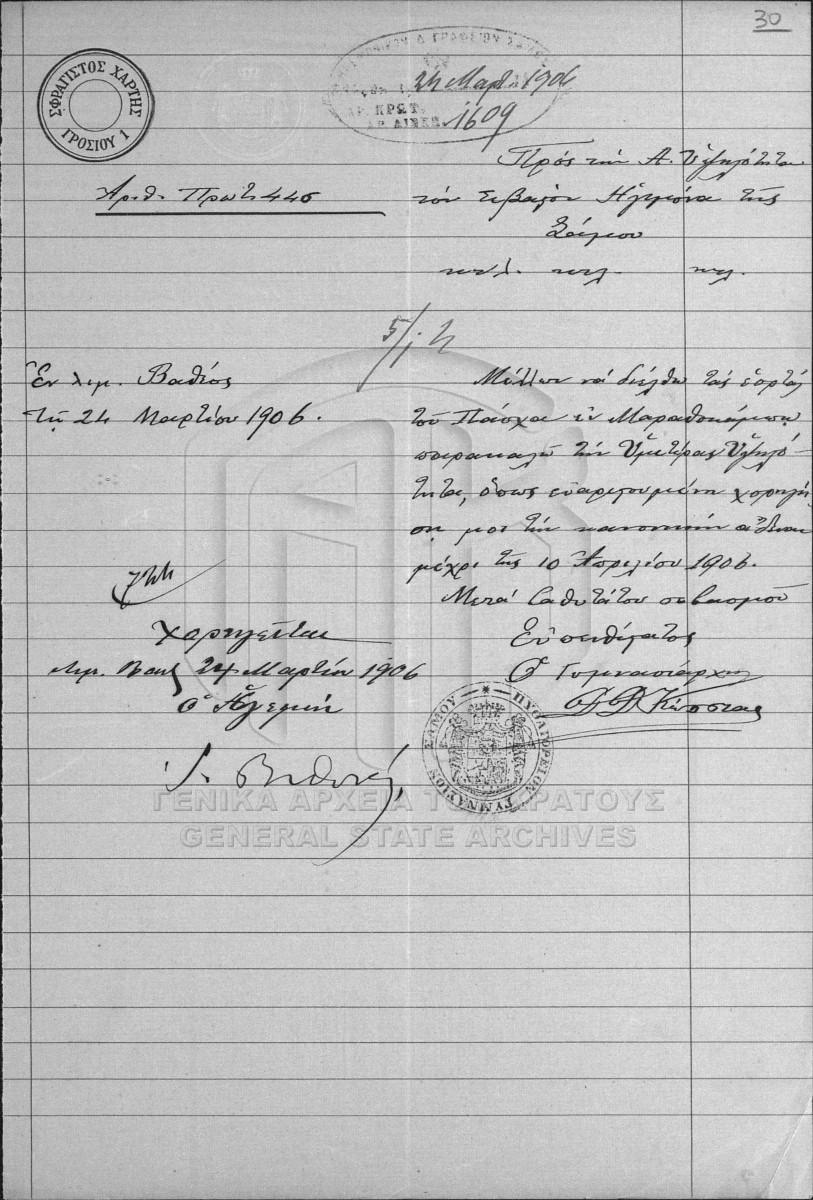 30
ΣΦΡΑΓΙΣΤΟΣ ΧΑΡΤΗΣ
ΓΡΟΣΙΟΥ 1
24 Μαρτ. 1906
ΑΡ. ΠΡΩΤ.
1609
Ἀριθ. Πρωτ. 445
Πρὸς τὴν Α. Ὑψηλότητα
τὸν Σεβαστὸν Ἡγεμόνα τῆς
Σάμου
κτλ. κτλ. κτλ.
Ἐν Λιμ. Βαθέος
τῇ 24 Μαρτίου 1906.
Μέλλων νὰ διέλθω τὰς ἑορτὰς
τοῦ Πάσχα ἐν Μαραθοκάμπῳ
παρακαλῶ τὴν Ὑμετέραν Ὑψηλό-
τητα, ὅπως εὐαρεστουμένη χορηγή-
σῃ μοι τὴν κανονικὴν ἄδειαν
μέχρι τῆς 10 Ἀπριλίου 1906.
Μετὰ βαθυτάτου σεβασμοῦ
Εὐπειθέστατος
Ὁ Γυμνασιάρχης
Χορηγεῖται
Λιμ. Βαθ. 24 Μαρτίου 1906
Ὁ Ἡγεμών
ΠΥΘΑΓΟΡΕΙΟΝ ΓΥΜΝΑΣΙΟΝ ΣΑΜΟΥ
ΓΕΝΙΚΑ ΑΡΧΕΙΑ ΤΟΥ ΚΡΑΤΟΥΣ
GENERAL STATE ARCHIVES